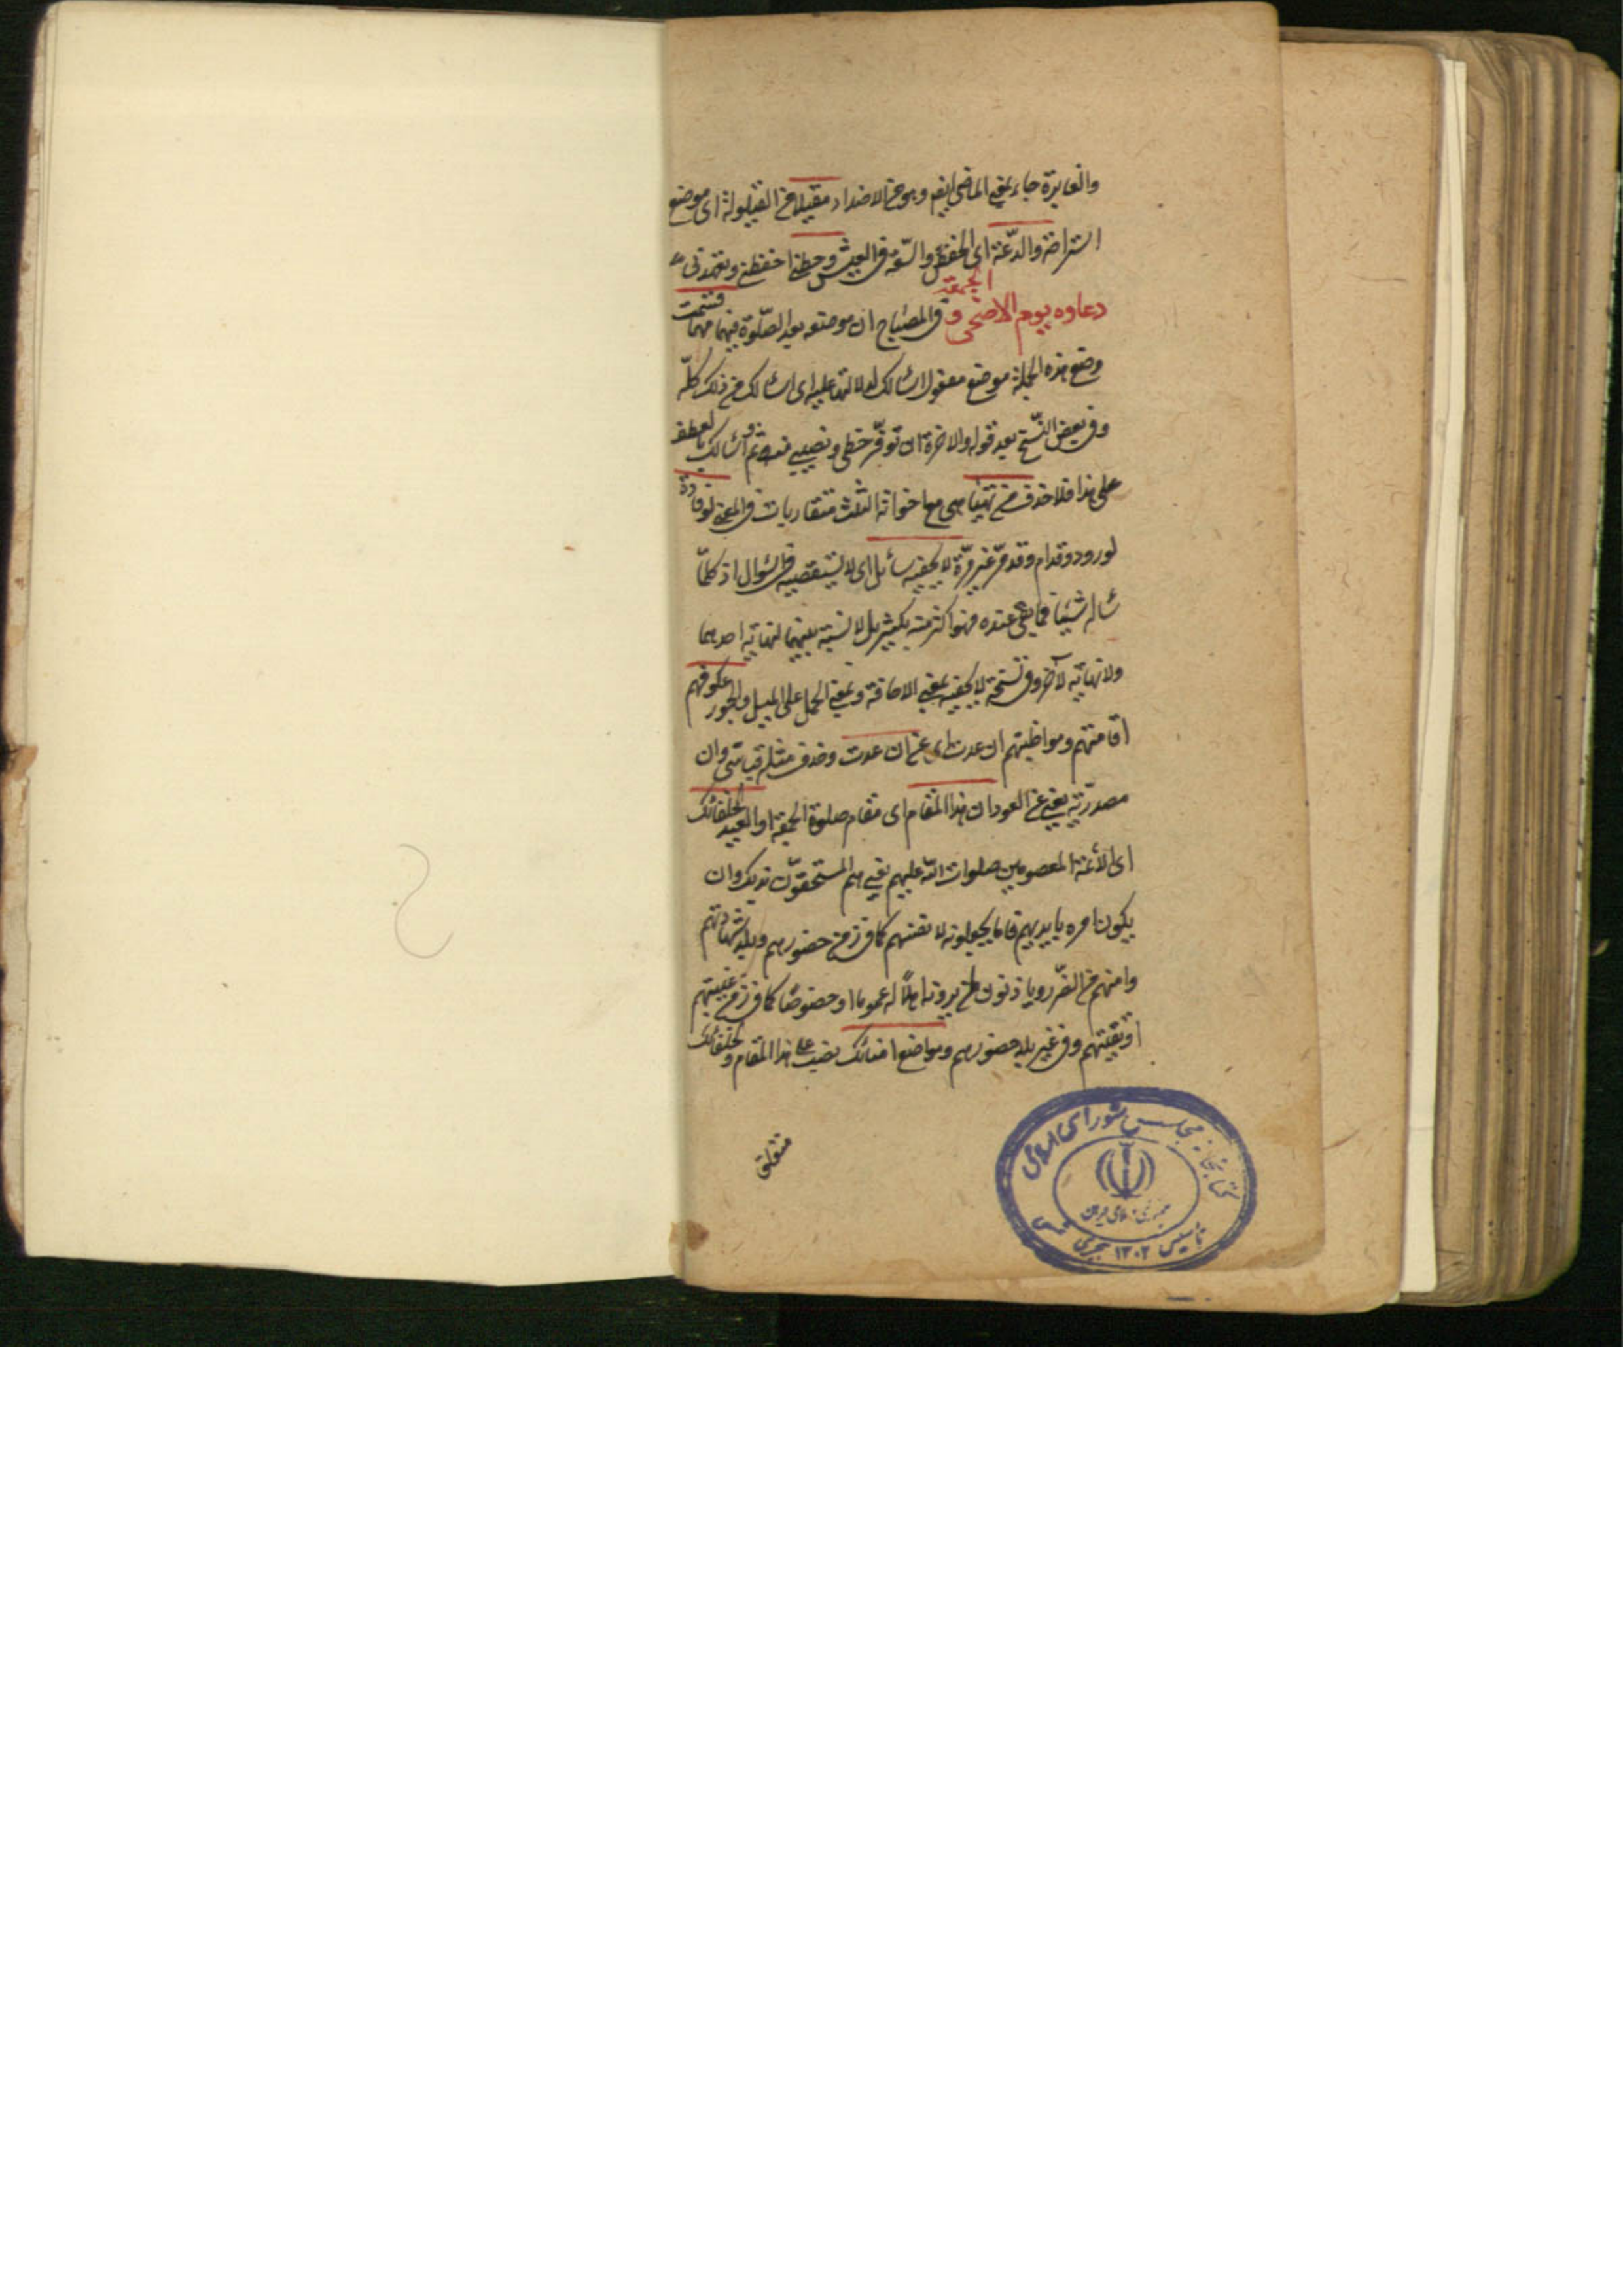 والغابرة جاء بمعنى الماضى ايضا وهو من الاضداد مقيلا من القيلولة اى موضع
استراحة والدّعة اى الخفض والسّعة فى العيش وحطنى احفظنى وتعهدنى
دعاوه يوم الاضحى و الجمعة فى المصباح ان موضعه بعد الصّلوة فيهما مهما قسمت
وضع هذه الجملة موضع مفعول اسالك لدلالتها عليه اى اسالك من ذلك كلّه
وفى بعض النّسخ بعد قوله والاخرة ان توفّر حظى ونصيبى منه ثم واسالك بالعطف
على هذا فلا حذف من تهيّا هى مع اخواته الثلث متقاربات فى المعنى لوفادة
لورود وقدام وقد مرّ غير مرّة لا يحفيه سائل اى لا يستقصيه فى السّوال اذ كلمّا
ساله شيئا فما بقى عنده فهو اكثر منه بكثير بل لا نسبة بينهما لنهاية احدهما
ولا نهاية لآخر وفى نسخة لا يحيفه بمعنى الاحافة وبمعنى الحمل على الميل والجور عكوفهم
اقامتهم ومواظبتهم ان عدت اى عن ان عدت وحذف مثله قياسى وان
مصدريّة يعنى عن العود ان هذا المقام اى مقام صلوة الجمعة او العيد لخلفائك
اى الائمّة المعصومين صلوات اللّه عليهم يعنى هم المستحقوّن بذلك وان
يكون امره بايديهم فاما يجعلونه لانفسهم كما فى زمن حضورهم وبلد شهادتهم
وامنهم من الضّرر وياذنون لمن يرونه اهلًا له عموما او خصوصًا كما فى زمن غيبتهم
او تقيتهم وفى غير بلد حضورهم ومواضع امنائك نصب على هذا المقام ولخلفائك
كتابخانه مجلس شورای اسلامی
جمهوری اسلامی ایران
تأسیس ۱۳۰۲ هجری شمسی